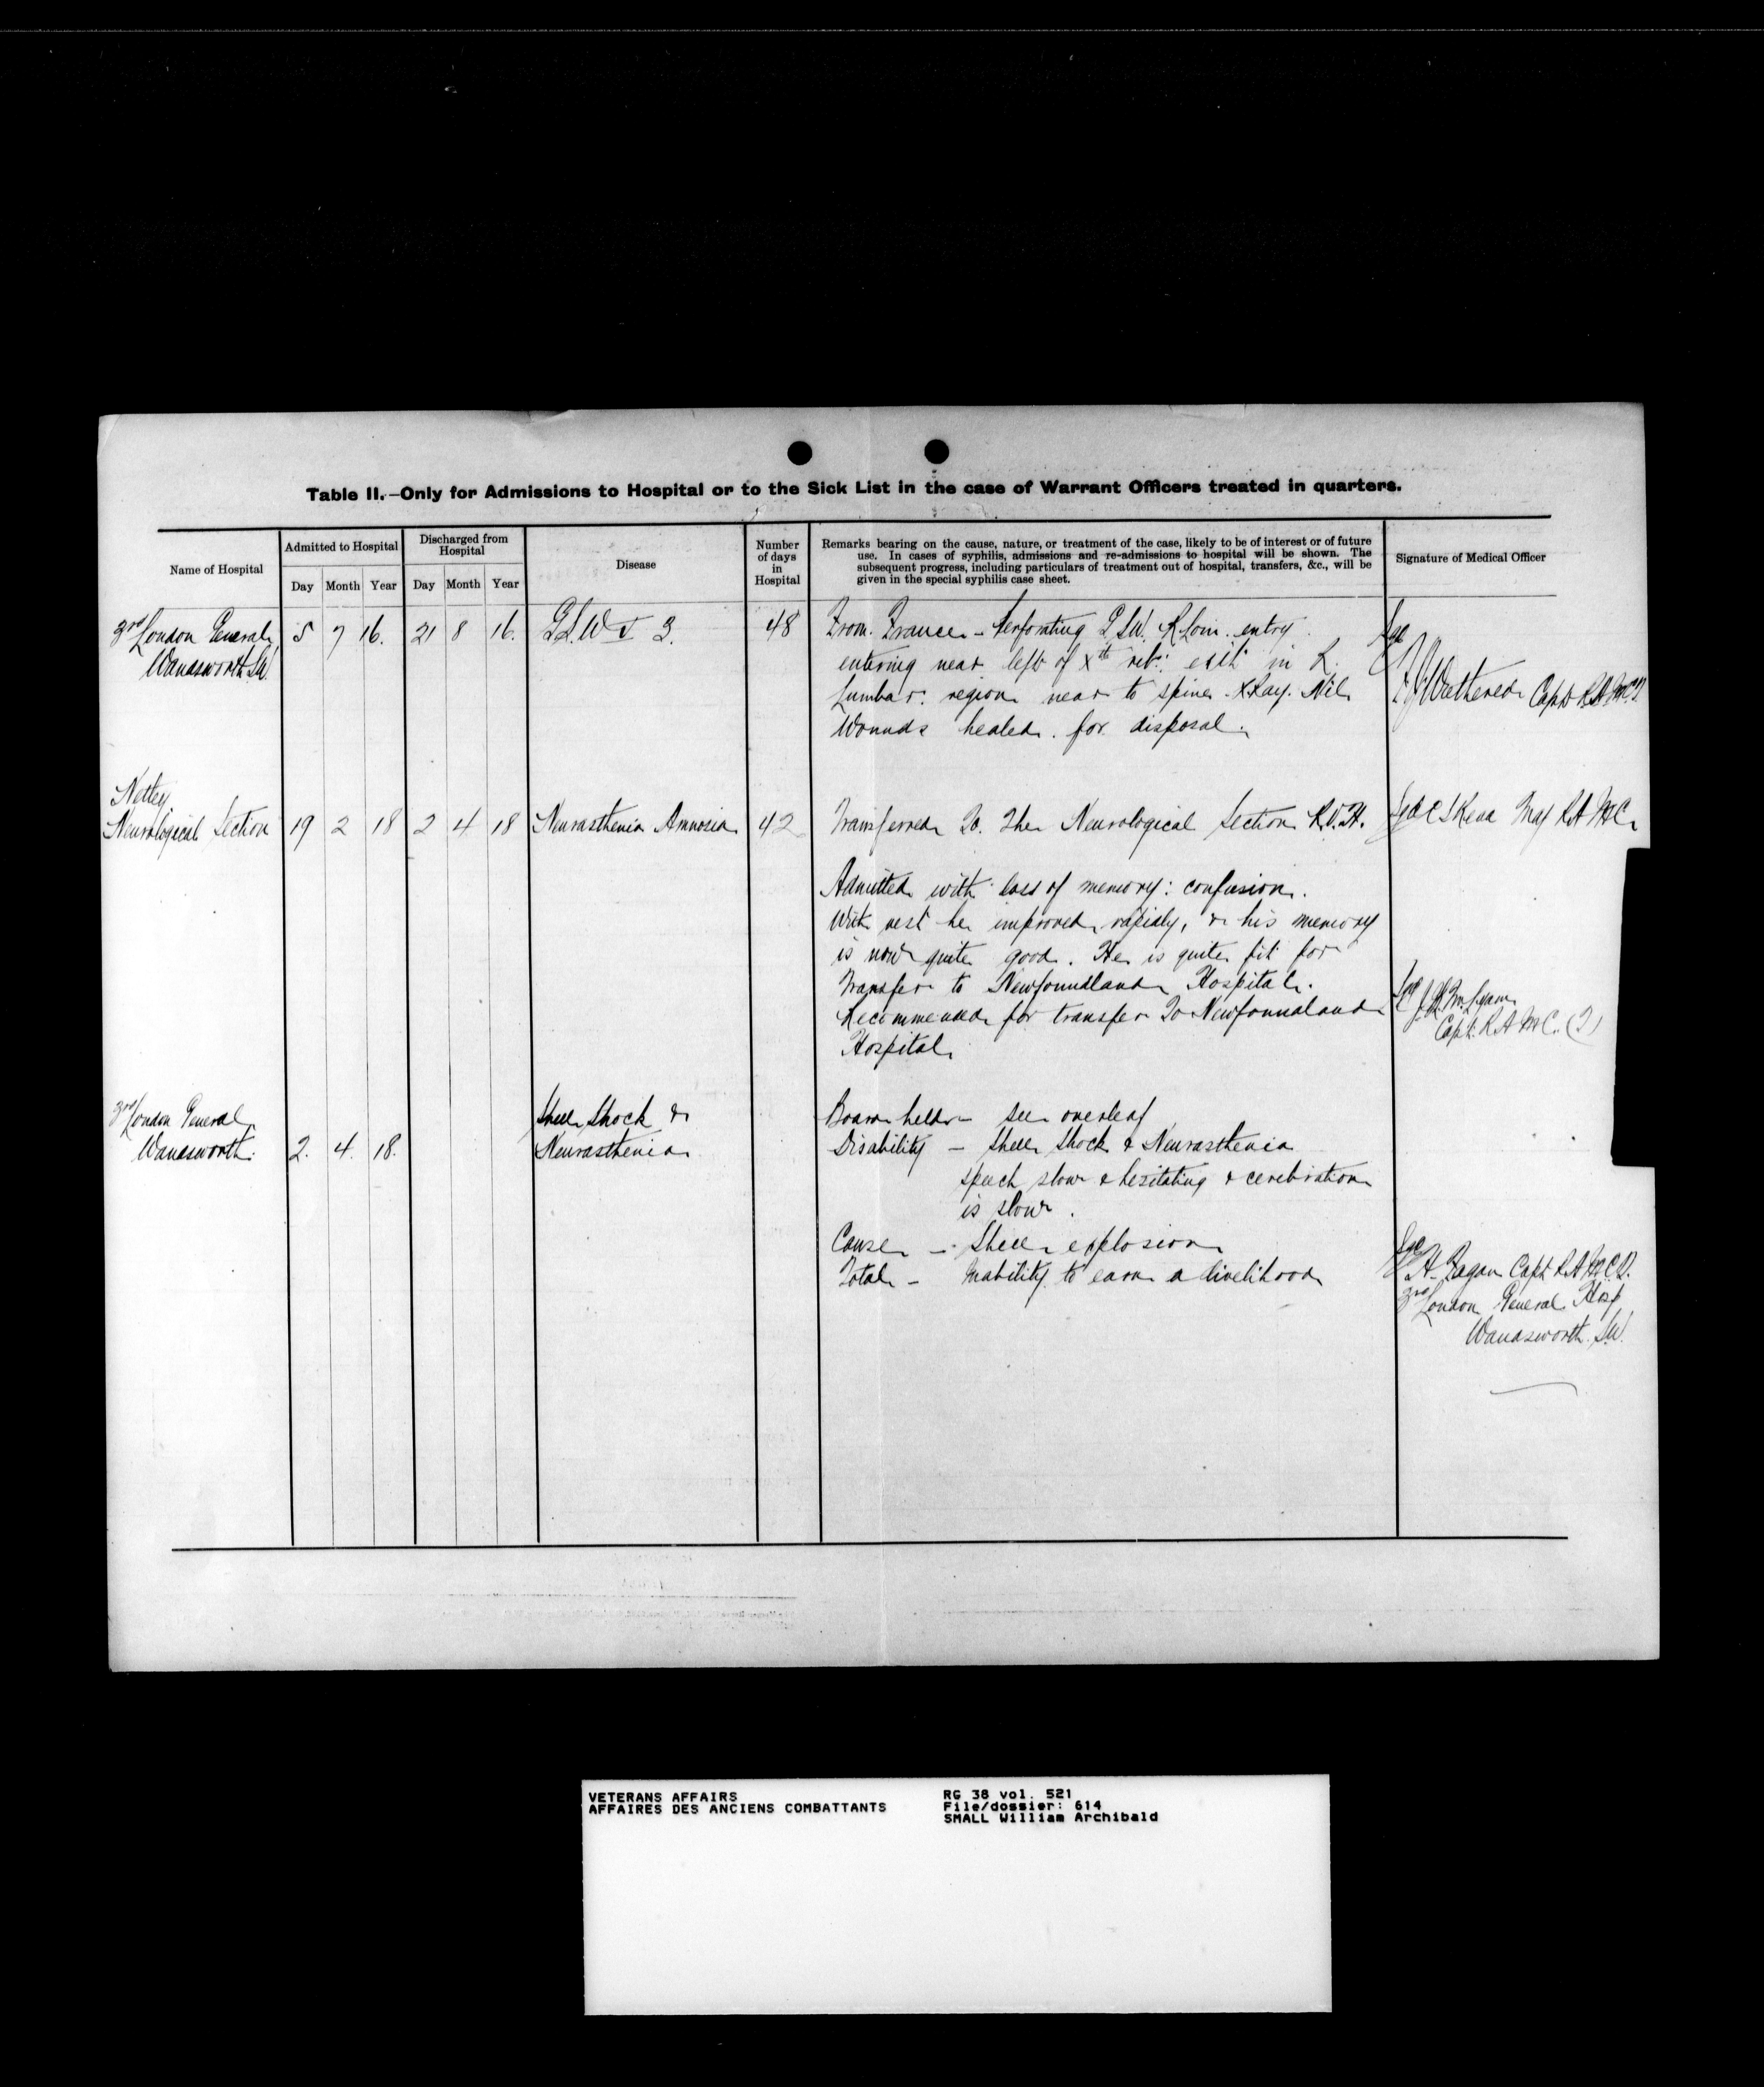 Table II.—Only for Admissions to Hospital or to the Sick List in the case of Warrant Officers treated in quarters.
Name of Hospital
Admitted to Hospital
Day Month Year
Discharged from
Hospital
Day Month Year
Disease
Number
of days
in
Hospital
Remarks bearing on the cause, nature, or treatment of the case, likely to be of interest or of future
use. In cases of syphilis, admissions and re-admissions to hospital will be shown. The
subsequent progress, including particulars of treatment out of hospital, transfers, &c., will be
given in the special syphilis case sheet.
Signature of Medical Officer
3rd London General 5 7 16. 21 8 16. G.S.W 3. 48 From France - Perforating G.S.W. R Loin. entry
Wandsworth S.W. entering near left of Xth rib: exit in R.
Lumbar. region near to spine. X Ray. Nil
Wounds healed. for disposal.
Sgd
Wethered Capt R.A.M.C.T.
Netley
Neurological Section 19 2 18 2 4 18 Neurasthenia Amnesia 42 Transferred To. The Neurological Section R.V.H. Sgd Maj R A M C
Admitted with loss of memory: confusion.
With rest he improved rapidly, & his memory
is now quite good. He is quite fit for
transfer to Newfoundland Hospital.
Recommended for transfer To Newfoundland
Hospital
Sgd
Capt. R A M C. (T)
3rd London General
Wandsworth. 2. 4. 18.
Shell Shock &
Neurasthenia
Board held - see overleaf
Disability - Shell Shock & Neurasthenia
speech slow & hesitating & cerebration
is slow.
Cause - Shell explosion
Total - Inability to earn a livelihood
Sgd
Capt R.A.M.C.T.
3rd London General Hosp
Wandsworth. S.W.
VETERANS AFFAIRS
AFFAIRES DES ANCIENS COMBATTANTS
RG 38 vol. 521
File/dossier: 614
SMALL William Archibald